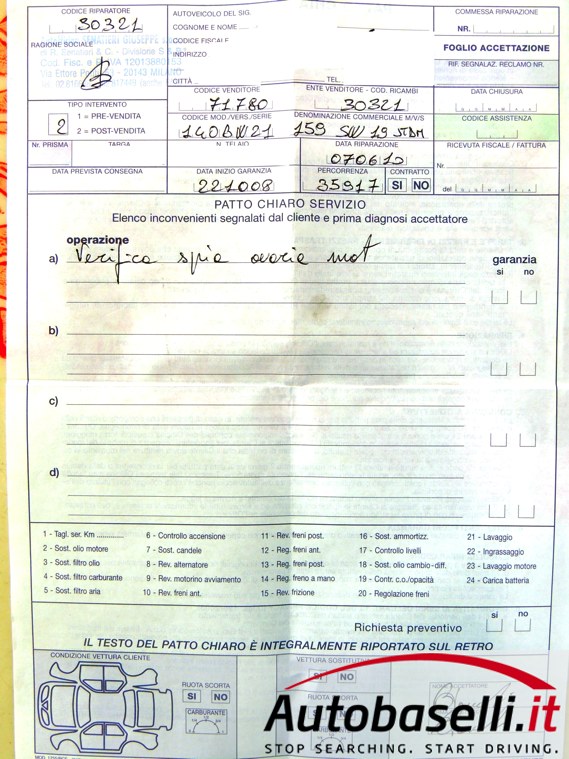 CODICE RIPARATORE
30321
AUTOVEICOLO DEL SIG.
COGNOME E NOME
COMMESSA RIPARAZIONE
NR.
RAGIONE SOCIALE
CODICE FISCALE
INDIRIZZO
FOGLIO ACCETTAZIONE
20143 MILANO
CITTÀ TEL.
RIF. SEGNALAZ. RECLAMO NR.
CODICE VENDITORE
71780
ENTE VENDITORE - COD. RICAMBI
30321
DATA CHIUSURA
TIPO INTERVENTO
2
1 = PRE-VENDITA
2 = POST-VENDITA
CODICE MOD./VERS./SERIE
DENOMINAZIONE COMMERCIALE M/V/S
159 SW 19 JTDM
CODICE ASSISTENZA
Nr. PRISMA
TARGA
N. TELAIO
DATA RIPARAZIONE
070610
RICEVUTA FISCALE / FATTURA
Nr.
del
DATA PREVISTA CONSEGNA
DATA INIZIO GARANZIA
221008
PERCORRENZA
35917
CONTRATTO
SI NO
PATTO CHIARO SERVIZIO
Elenco inconvenienti segnalati dal cliente e prima diagnosi accettatore
operazione
garanzia
si no
a) Verifica spia avaria mot
b)
c)
d)
1 - Tagl. ser. Km .............
2 - Sost. olio motore
3 - Sost. filtro olio
4 - Sost. filtro carburante
5 - Sost. filtro aria
6 - Controllo accensione
7 - Sost. candele
8 - Rev. alternatore
9 - Rev. motorino avviamento
10 - Rev. freni ant.
11 - Rev. freni post.
12 - Reg. freni ant.
13 - Reg. freni post.
14 - Reg. freno a mano
15 - Rev. frizione
16 - Sost. ammortizz.
17 - Controllo livelli
18 - Sost. olio cambio - diff.
19 - Contr. c.o./opacità
20 - Regolazione freni
21 - Lavaggio
22 - Ingrassaggio
23 - Lavaggio motore
24 - Carica batteria
si no
Richiesta preventivo
IL TESTO DEL PATTO CHIARO È INTEGRALMENTE RIPORTATO SUL RETRO
CONDIZIONE VETTURA CLIENTE
RUOTA SCORTA
SI NO
CARBURANTE
VETTURA SOSTITUTIVA
SI NO
RUOTA SCORTA
Autobaselli.it
STOP SEARCHING. START DRIVING.